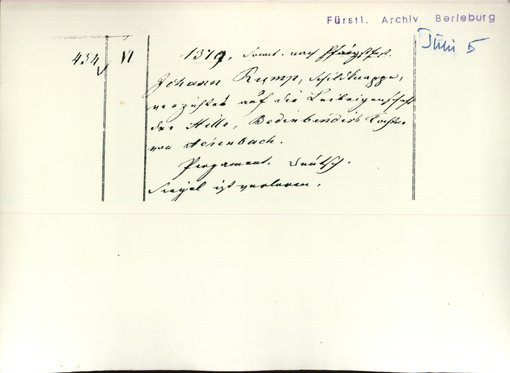 Fürstl. Archiv Berleburg
Juni 5
434 VI 1379, Sonnt. nach Pfingstfest.
Johann Rump, Schildknappe,
verzichtet auf die Leibeigenschaft
der Hille, Bedenbenders Tochter
von Aeienbach.
Pergament. Deutsch.
Siegel ist verloren.